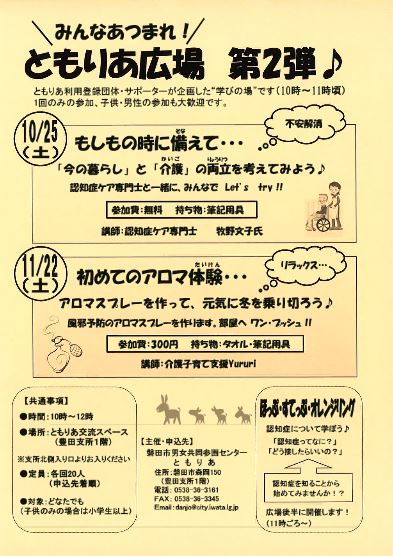 みんなあつまれ!
ともりあ広場 第2弾♪
ともりあ利用登録団体・サポーターが企画した“学びの場”です(10時～11時頃)
1回のみの参加、子供・男性の参加も大歓迎です。
10/25
(土)
不安解消
もしもの時に備えて・・・
そな
「今の暮らし」と「介護」の両立を考えてみよう♪
かいご
りょうりつ
認知症ケア専門士と一緒に、みんなで Let's try!!
参加費:無料 持ち物:筆記用具
講師:認知症ケア専門士 牧野文子氏
11/22
(土)
リラックス…
初めてのアロマ体験・・・
たいけん
アロマスプレーを作って、元気に冬を乗り切ろう♪
風邪予防のアロマスプレーを作ります。部屋へ ワン・プッシュ!!
参加費:300円 持ち物:タオル・筆記用具
講師:介護子育て支援Yururi
【共通事項】
●時間:10時～12時
●場所:ともりあ交流スペース
(豊田支所1階)
※支所北側入り口よりお入りください
●定員:各回20人
(申込先着順)
●対象:どなたでも
(子供のみの場合は小学生以上)
【主催・申込先】
磐田市男女共同参画センター
ともりあ
住所:磐田市森岡150
(豊田支所1階)
電話:0538-36-3161
FAX:0538-36-3345
Email:danjo@city.iwata.lg.jp
ほっぷ・すてっぷ・オレンジリング
認知症について学ぼう!
「認知症ってなに?」
「どう接したらいいの?」
認知症を知ることから
始めてみませんか!?
広場後半に開催します!
(11時ごろ～)